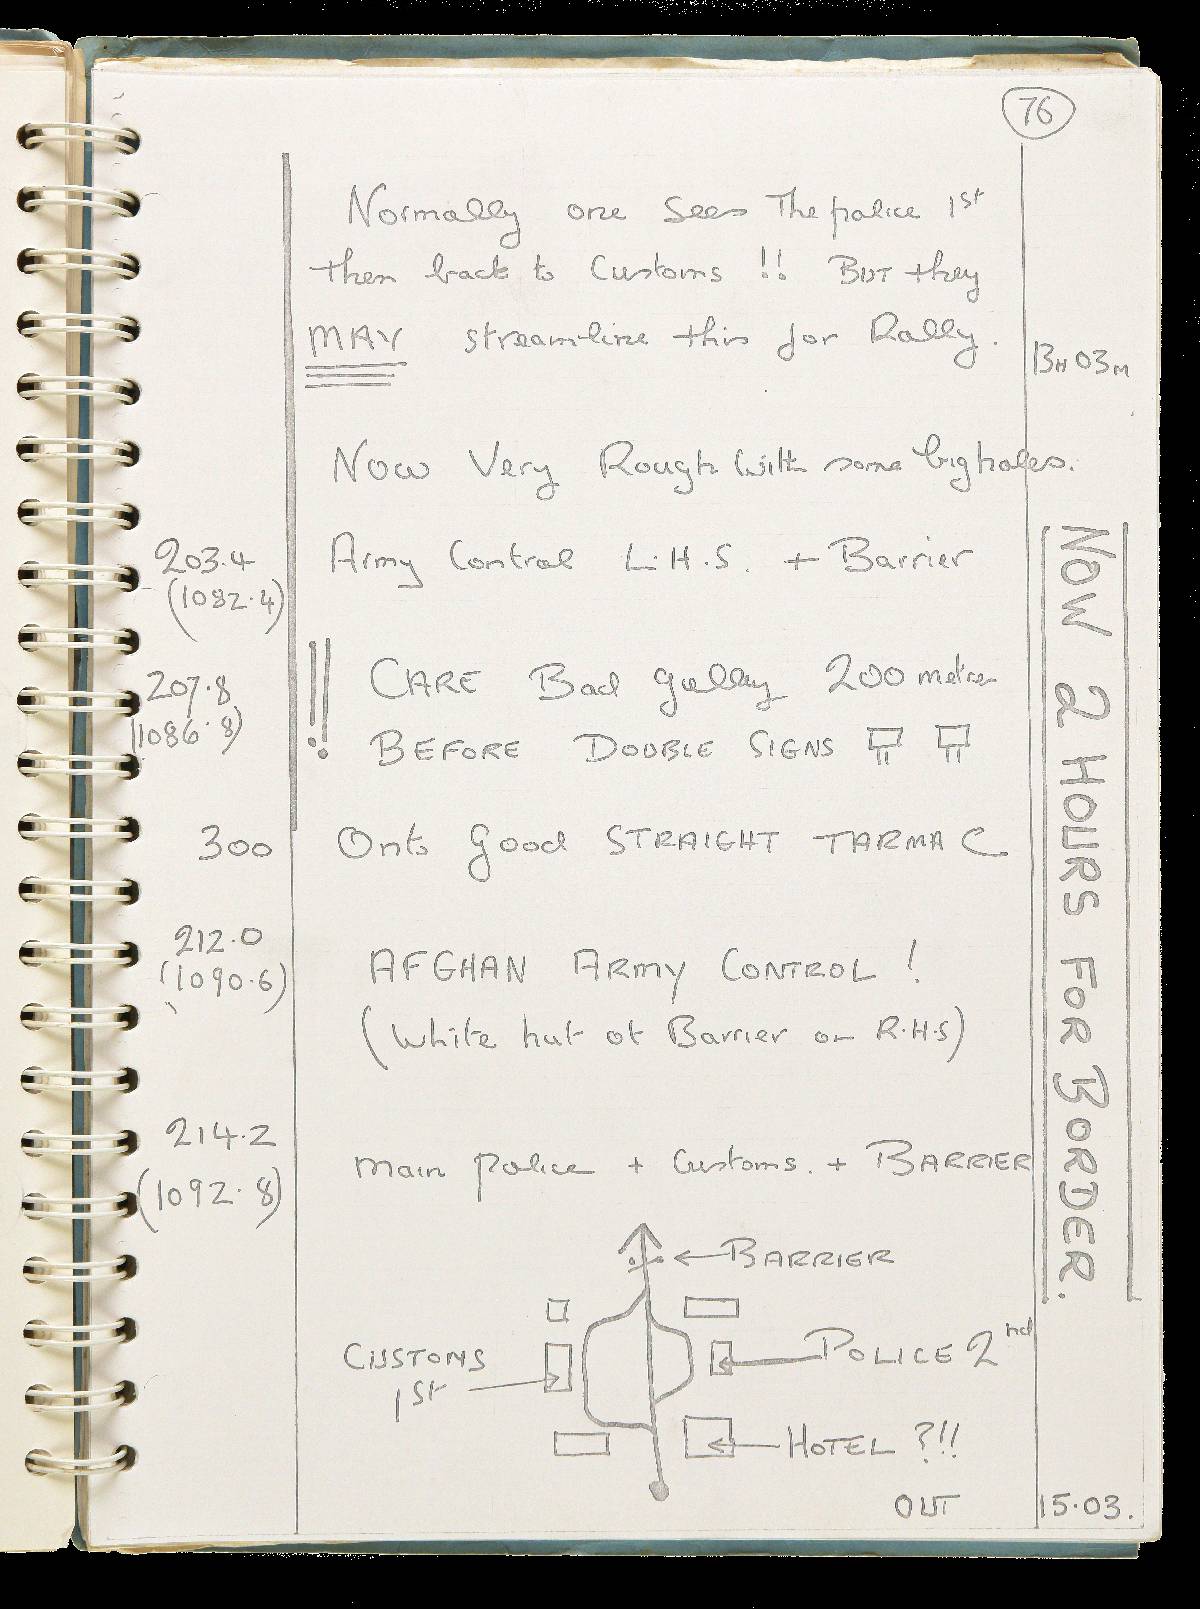 76
Normally one sees The police 1st
then back to Customs !! BUT they
MAY streamline this for Rally.
13H 03M
Now Very Rough with some big holes.
203.4
(1082.4)
Army Control L.H.S. + Barrier
207.8
(1086.8)
!! CARE Bad gulley 200 metres
BEFORE DOUBLE SIGNS
300
Onto Good STRAIGHT TARMAC
212.0
(1090.6)
AFGHAN ARMY CONTROL !
(White hut at Barrier on R.H.S)
214.2
(1092.8)
Main police + Customs. + BARRIER
NOW 2 HOURS FOR BORDER.
BARRIER
CUSTOMS
1st
POLICE 2nd
HOTEL ?!!
OUT
15.03.